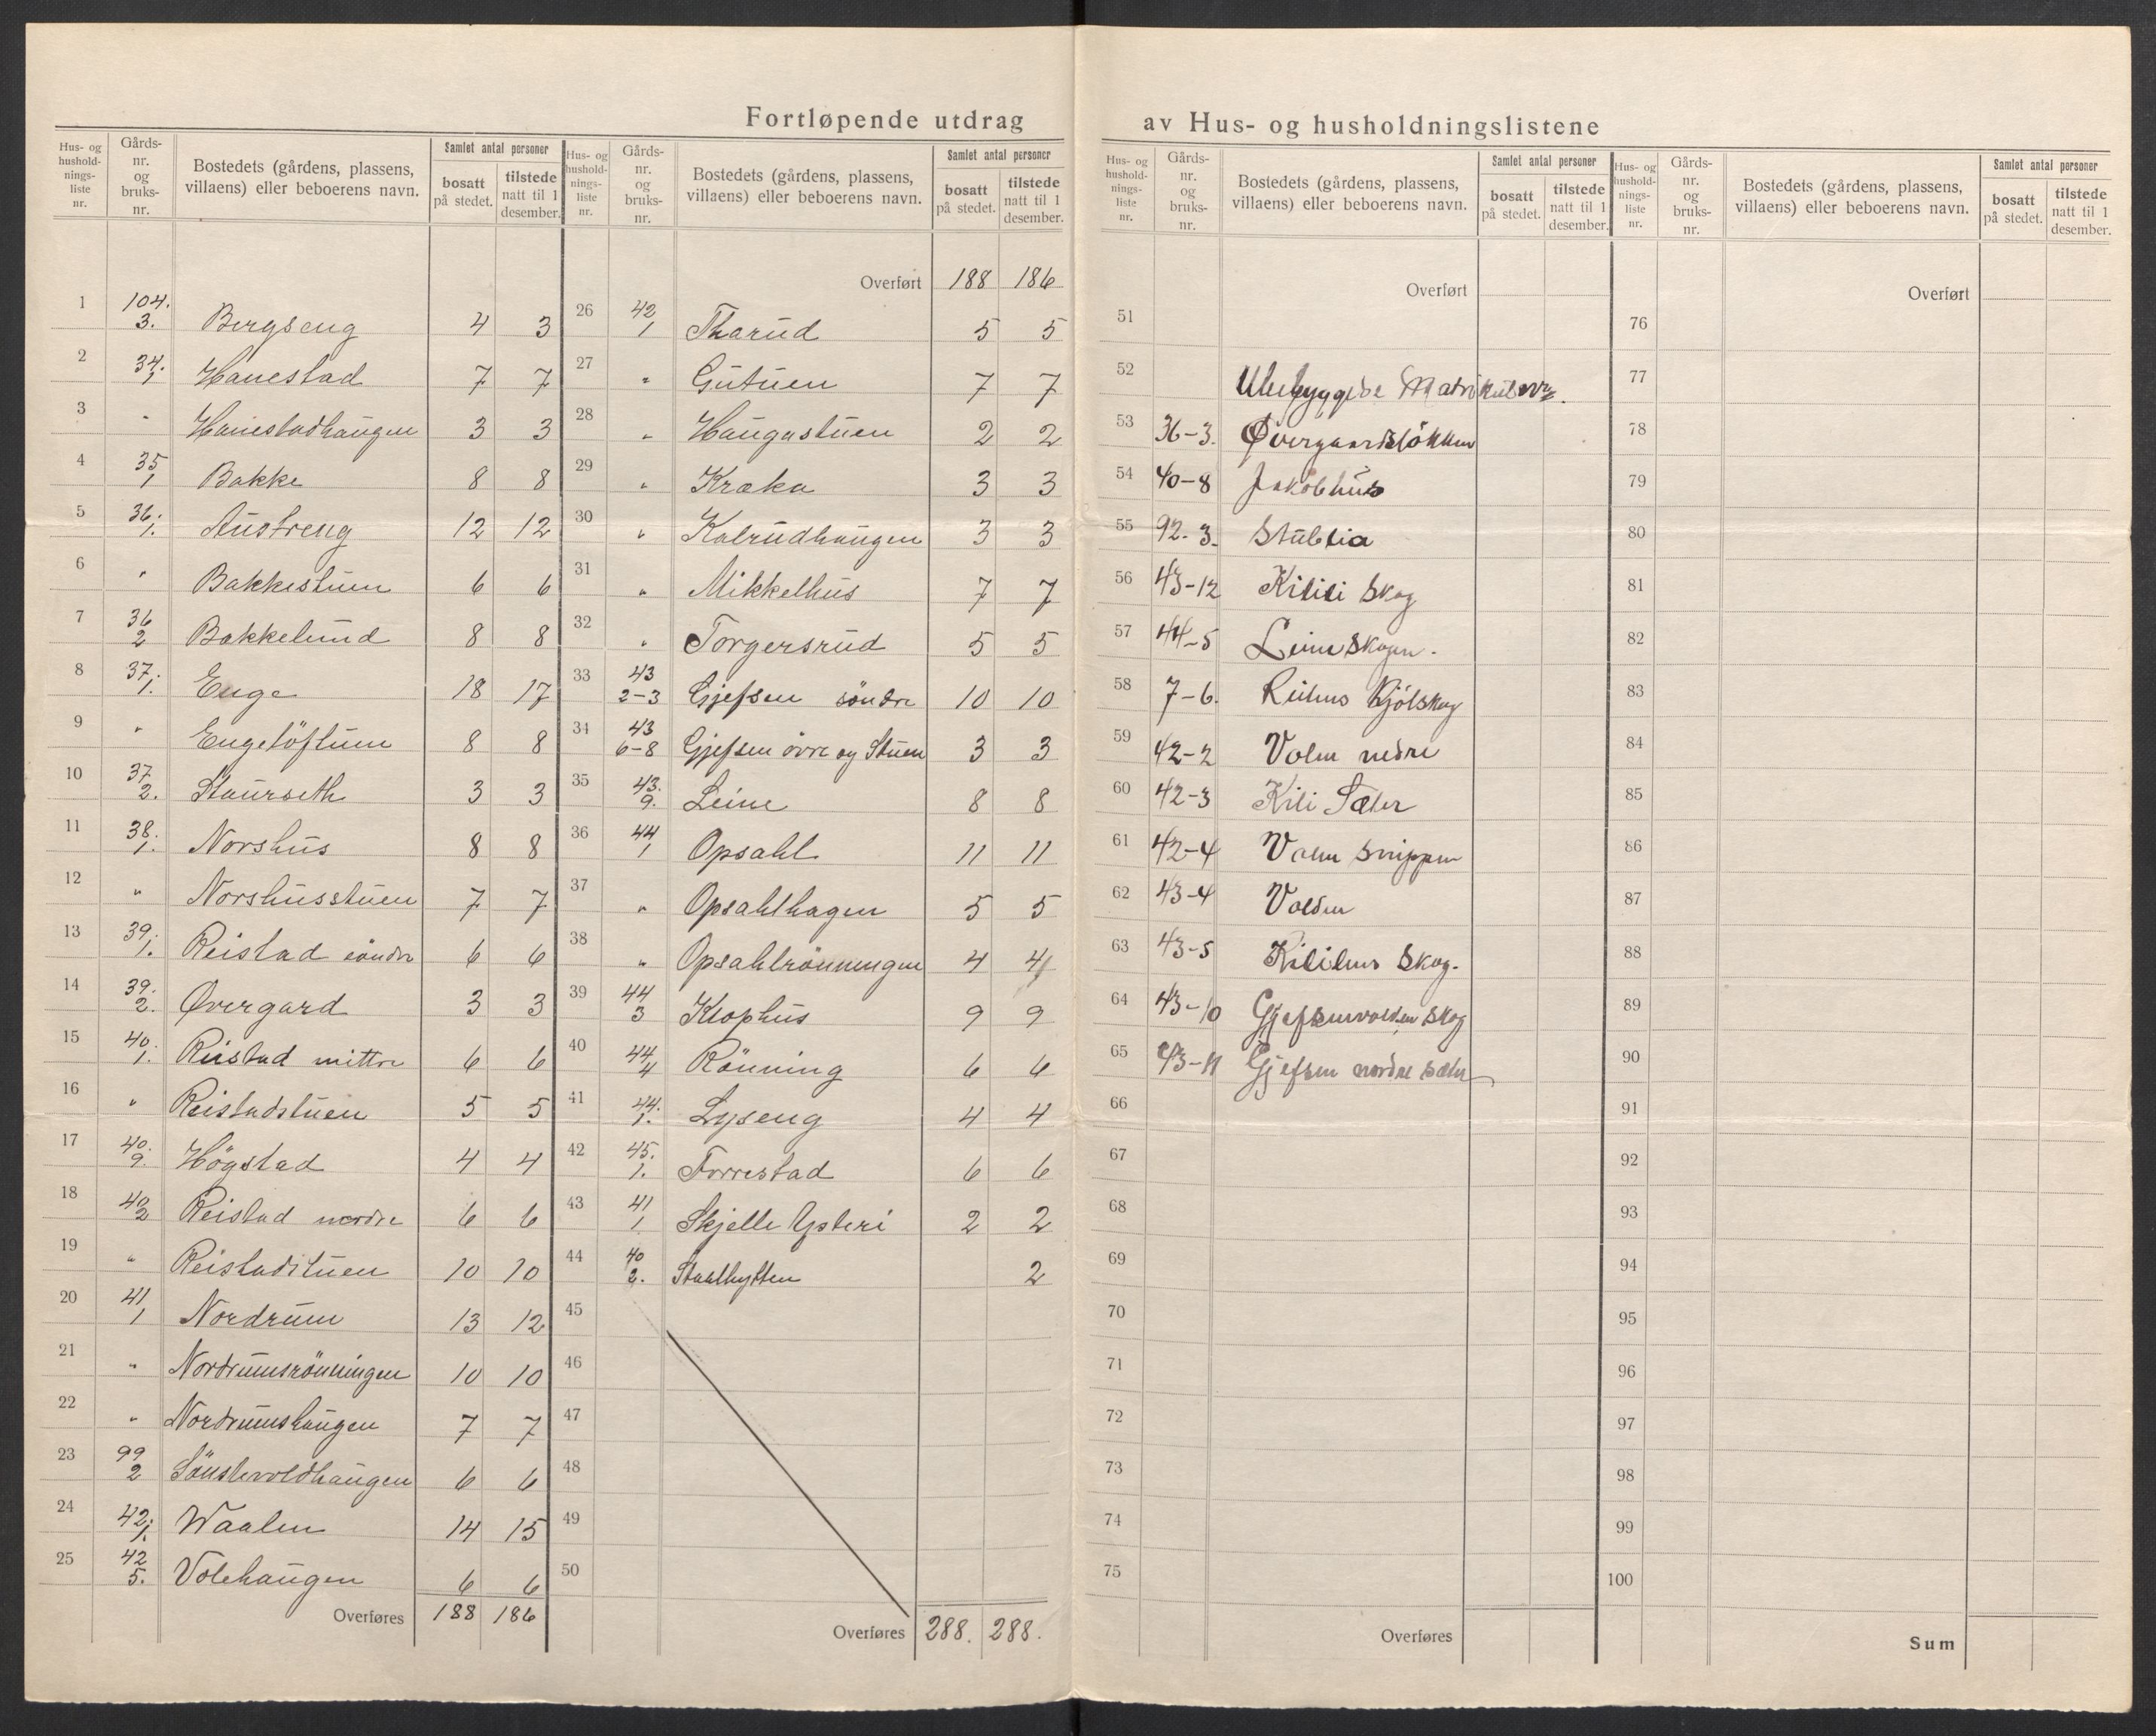 Fortløpende utdrag av Hus- og husholdningslistene
Hus- og husholdningsliste nr. | Gårds- nr. og bruks- nr. | Bostedets (gårdens, plassens, villaens) eller beboerens navn. | Samlet antal personer | bosatt på stedet. | tilstede natt til 1 desember.
1 104. 3. Bergseng 4 3
2 34. 1 Hanestad 7 7
3 " Hanestadhaugen 3 3
4 35 1 Bakke 8 8
5 36. 1. Austreng 12 12
6 " Bakkestuen 6 6
7 36 2 Bakkelund 8 8
8 37. 1. Enge 18 17
9 " Engeløftuen 8 8
10 37 2. Staurseth 3 3
11 38. 1. Norshus 8 8
12 " Norshusstuen 7 7
13 39. 1. Reistad söndre 6 6
14 39. 2. Øvergard 3 3
15 40. 1. Reistad mittre 6 6
16 " Reistadstuen 5 5
17 40. 9. Högstad 4 4
18 40 2 Reistad nordre 6 6
19 " Reistadstuen 10 10
20 41 1 Nordrum 13 12
21 " Nordrumsrönningen 10 10
22 " Nordrumshaugen 7 7
23 99 2 Sönstevoldhaugen 6 6
24 42. 1. Waalen 14 15
25 42 5. Volehaugen 6 6
Overføres 188 186
Hus- og husholdningsliste nr. | Gårds- nr. og bruks- nr. | Bostedets (gårdens, plassens, villaens) eller beboerens navn. | Samlet antal personer | bosatt på stedet. | tilstede natt til 1 desember.
Overført 188 186
26 42 1 Tharud 5 5
27 " Gutuen 7 7
28 " Haugastuen 2 2
29 " Kraka 3 3
30 " Kalrudhaugen 3 3
31 " Mikkelhus 7 7
32 " Torgersrud 5 5
33 43 2-3 Gjefsen söndre 10 10
34 43 6-8 Gjefsen övre og Stuen 3 3
35 43. 9. Leine 8 8
36 44 1 Opsahl 11 11
37 " Opsahlhagen 5 5
38 " Opsahlrönningen 4 4
39 44 3 Klophus 9 9
40 44 4 Rönning 6 6
41 44. 1. Lyseng 4 4
42 45. 1. Torrestad 6 6
43 41 1 Skjelle Ysteri 2 2
44 40 2. Staalhytten 2
45
46
47
48
49
50
Overføres 288. 288.
Hus- og husholdningsliste nr. | Gårds- nr. og bruks- nr. | Bostedets (gårdens, plassens, villaens) eller beboerens navn. | Samlet antal personer | bosatt på stedet. | tilstede natt til 1 desember.
Overført
51
52 Ubebyggede Matrikulnr.
53 36-3. Øvergaardsløkken
54 40-8 Jakobhus
55 92-3. Stublia
56 43-12 Kilili Skog
57 44-5 Leine Skogen.
58 7-6.
59 42-2 Volen nedre
60 42-3 Kili Sæter
61 42-4 Volen Snippen
62 43-4 Volden
63 43-5 Skog.
64 43-10 Gjefsenvolden Skog
65 43-11 Gjefsen nordre sæter
66
67
68
69
70
71
72
73
74
75
Overføres
Hus- og husholdningsliste nr. | Gårds- nr. og bruks- nr. | Bostedets (gårdens, plassens, villaens) eller beboerens navn. | Samlet antal personer | bosatt på stedet. | tilstede natt til 1 desember.
Overført
76
77
78
79
80
81
82
83
84
85
86
87
88
89
90
91
92
93
94
95
96
97
98
99
100
Sum